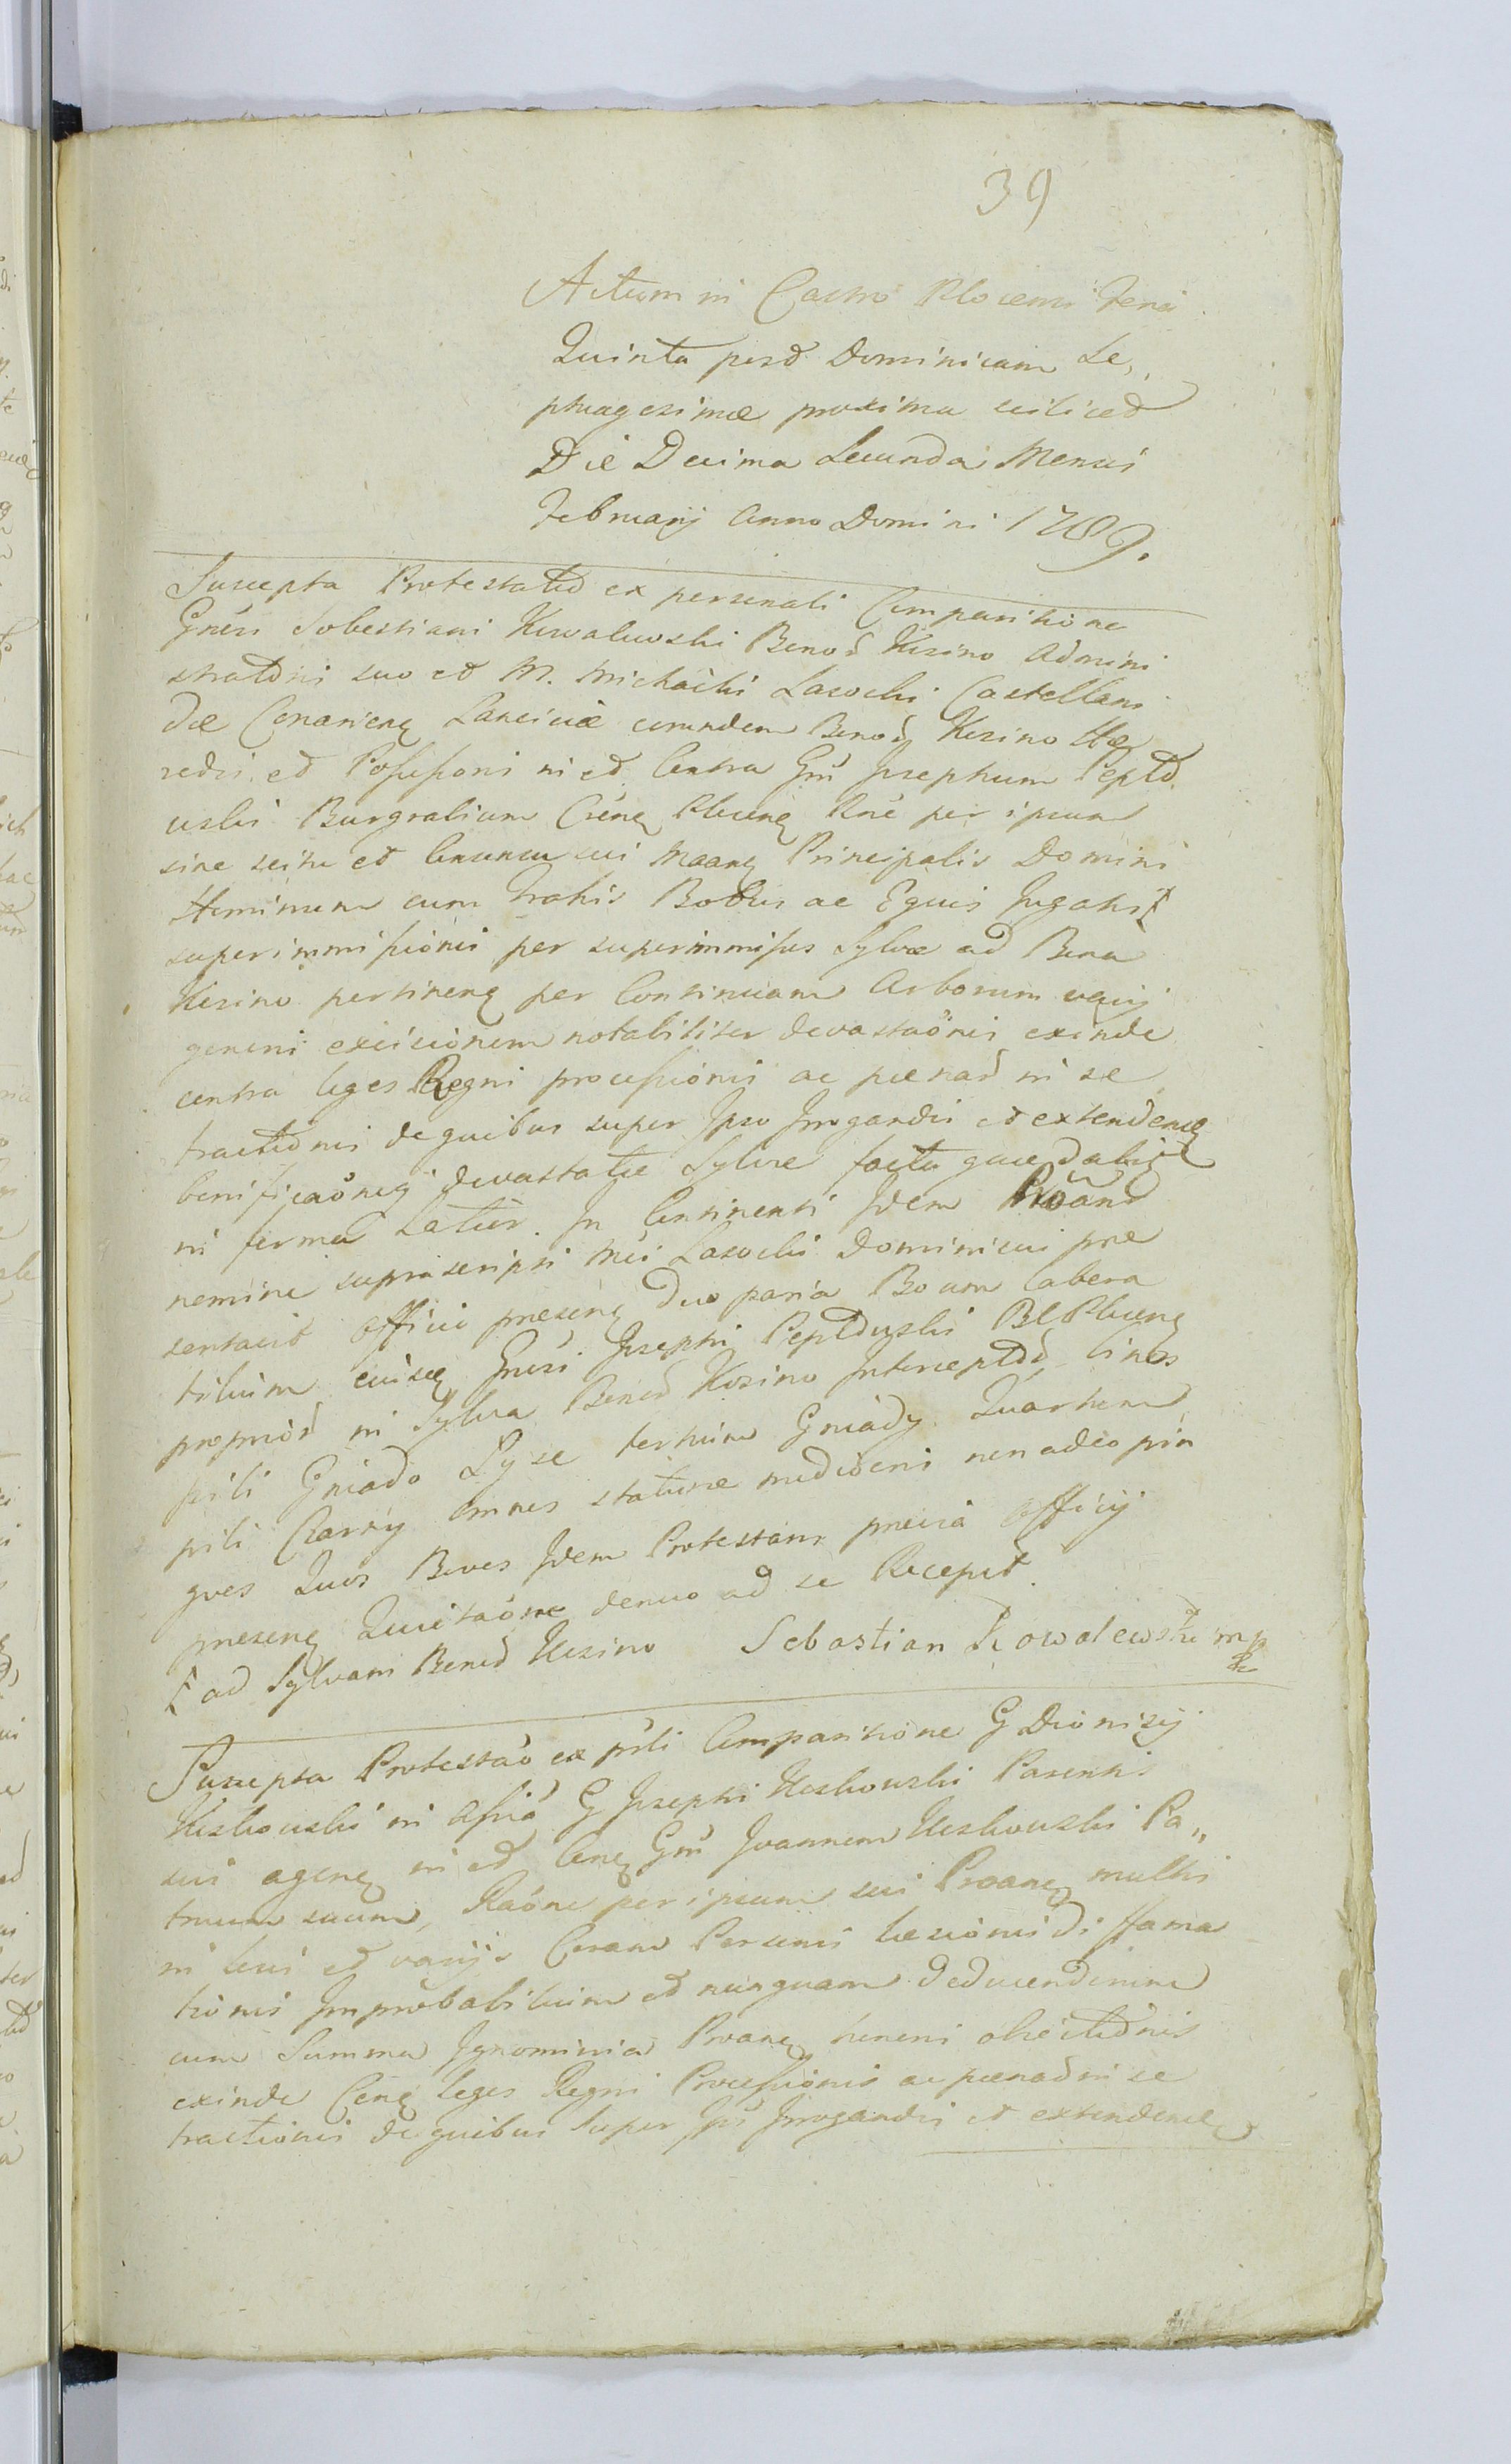 39
Actum in Castro Plocensi Feria
Quinta post Dominicam Se„
ptuagesimæ proxima scilicet
Die Decima Secunda Mensis
Februarij Anno Domini 1789.
Suscepta Protestatio ex personali Comparitione
Gnosi Sobestiani Kowalewski Bonor Kosino Admini
stratoris suo et M. Michaelis Lasocki Castellani
dæ Conariens Lanciciæ eorundem Bonor Kosino Hæ
redis et Possessoris ni et Contra Gm Josephum
uski Burgrabium Plocens Rne per ipsum
sine scitu et Consensu sui Principalis Domini
Hominum cum Trahis Bobus ac Equis Jugatis
superimmissionis per superimmissos Sylvæ ad Bona
Kosino pertinens per Continuam Arborum varij
generis excisionem notabiliter devastaõnis exinde
contra leges Regni processionis ac pænar in se
tractionis de quibus super Ipso Irrogandis et extendend
devastatæ Sylvæ facta
ni forma Latior. In Continenti Idem
nomine suprascripti Mci Lasocki Domini sui præ
sentavit Officio præsens duo paria Boum labora
tilium Gnosi Josephi Plocens
propriôr in Sylva Bonor Kosino
pili Gniado Lyse tertium Gniady Quartum
pili Czarny omnes staturæ mediocris non adeo pin
gves Quos Boves Idem Protestans prævia Officij
præsens Quietaõne denuo ad se Recepit.
ad Sylvam Bonor Kosino Sebastian Kowalewski mp
Suscepta Protestaõ ex prli Comparitione G Dionisij
Koskowski ni Assia G Josephi Koskowski Parentis
sui agens ni et Cons Gm Joannem Koskowski Pa„
truum suum, Raõne per ipsum sui multis
in locis et varijs Coram Personis læsionis diffama
tionis Improbabilium et nunquam deducendorum
cum Summa Ignominia honori obiectionis
exinde leges Regni Processionis ac pænar in se
tractionis de quibus super Ipso Irrogandis et extendend